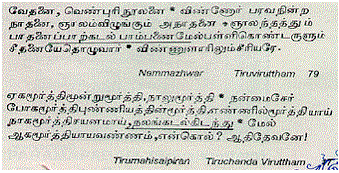 வேதனை, வெண்புரிநூலனை * விண்ணோர் பரவநின்ற
நாதனை, ஞாலம்விழுங்கும் அநாதனை * ஞாலந்தத்தும்
பாதனைப்பாற்கடல் பாம்பணைமேல்பள்ளிகொண்டருளும்
சீதனையேதொழுவார் * விண்ணுளாரிலும்சீரியரே.
Nammazhwar Tiruviruttham 79
ஏகமூர்த்திமூன்றுமூர்த்தி,நாலுமூர்த்தி * நன்மைசேர்
போகமூர்த்திபுண்ணியத்தின்மூர்த்தி,எண்ணில்மூர்த்தியாய்
நாகமூர்த்திசயனமாய்,நலங்கடல்கிடந்து * மேல்
ஆகமூர்த்தியாயவண்ணம்,என்கொல்? ஆதிதேவனே!
Tirumahisaipiran Tiruchanda Viruttham